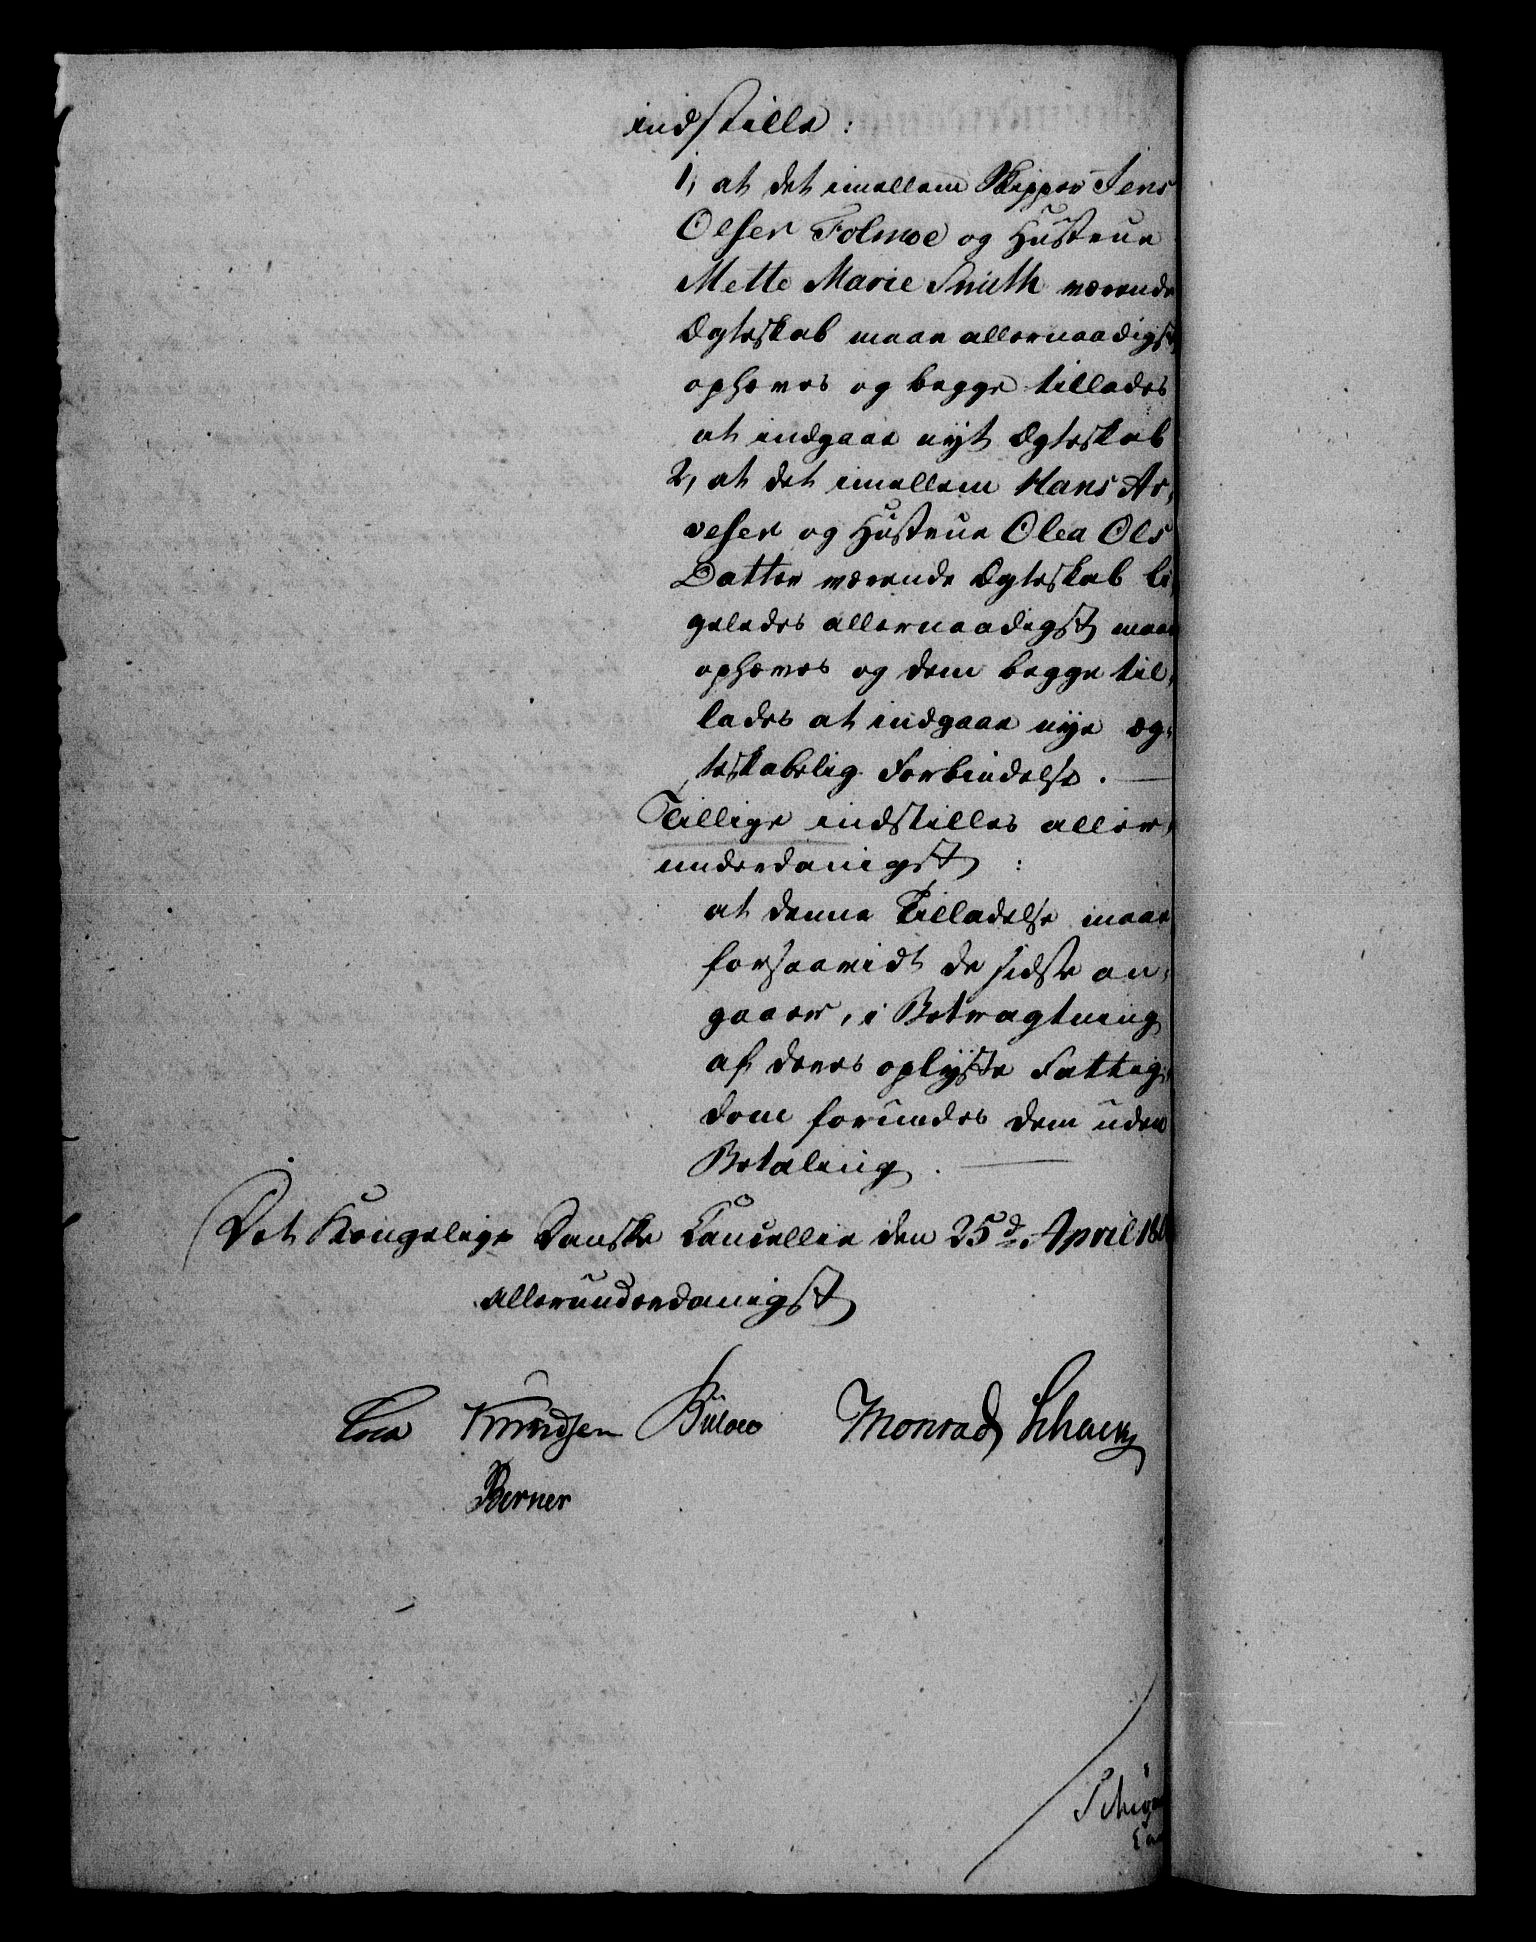 indstille:
1, at det imellem Skipper Jens
Olsen Folmoe og Hustrue
Mette Marie Smith værende
Ægteskab maae allernaadigst
ophæves og begge tillades
at indgaae nyt Ægteskab
2, at det imellem Hans Ar,
vesen og Hustrue Olea Ols
Datter værende Ægteskab li
geledes allernaadigst maae
ophæves og dem begge til,
lades at indgaae nye æg,
teskabelig Forbindelse. —
Tillige indstilles aller,
underdanigst:
at denne Tilladelse maae
forsaavidt de sidste an,
gaaer, i Betragtning
af deres oplyste Fattig,
dom forundes dem uden
Betaling. —
Det Kongelige Danske Cancellie den 25d April 18
allerunderdanigst
Knudsen Bülow Monrad
Berner